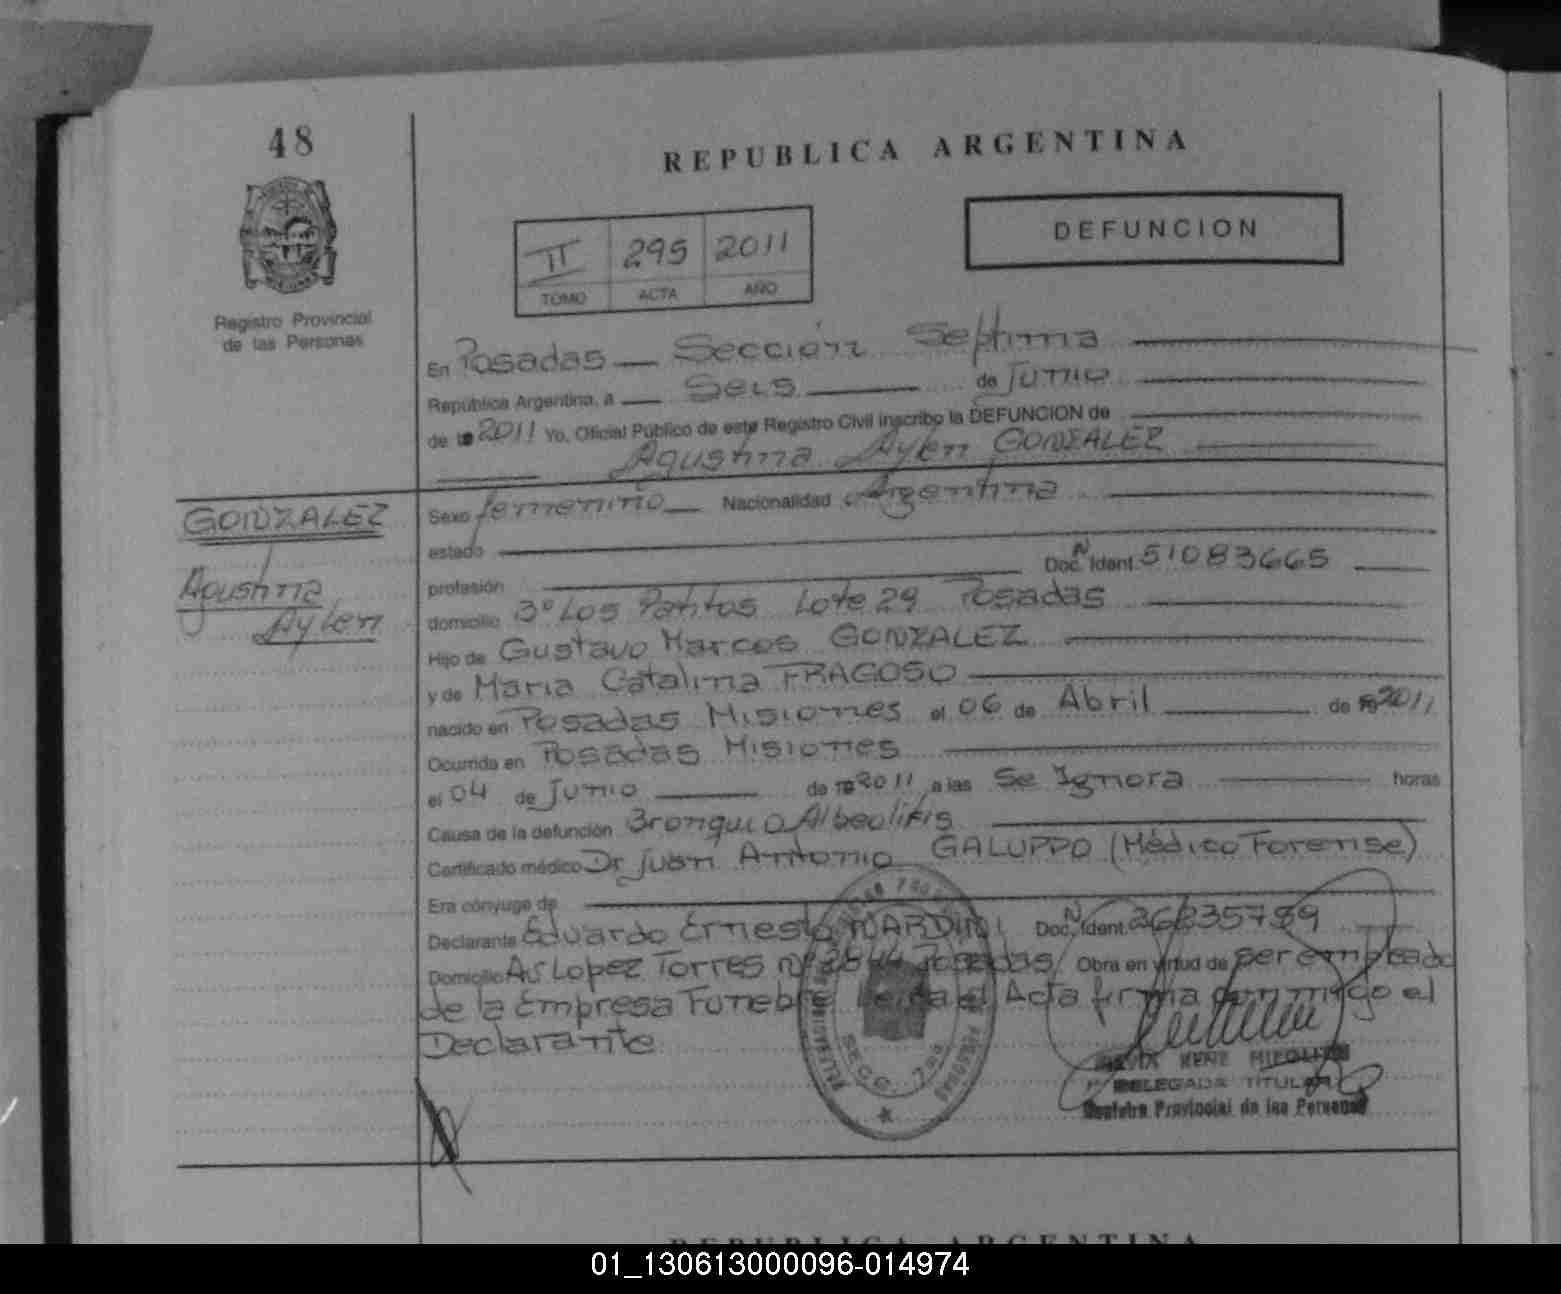 48
REPUBLICA ARGENTINA
DEFUNCION
II 295 2011
TOMO ACTA AÑO
Registro Provincial
de las Personas
En Posadas Sección Septima
República Argentina, a Seis de Junio
de 19 2011 Yo, Oficial Público de este Registro Civil inscribo la DEFUNCION de
Agustina Aylen GONZALEZ
GONZALEZ
Agustina
Aylen
Sexo femenino Nacionalidad Argentina
estado
profesión Doc. N Ident. 51083665
domicilio 3º Los Patitos Lote 29 Posadas
Hijo de Gustavo Marcos GONZALEZ
y de Maria Catalina FRAGOSO
nacido en Posadas Misiones el 06 de Abril de 19 2011
Ocurrida en Posadas Misiones
el 04 de Junio de 19 2011 a las Se Ignora horas
Causa de la defunción Bronquio Albeolitis
Certificado médico Dr Juan Antonio GALUPPO (Médico Forense)
Era cónyuge de
Declarante Eduardo Ernesto NARDINI Doc. N Ident. 26235789
Domicilio Av Lopez Torres Nº Posadas Obra en virtud de ser empleado
de la Empresa Funebre Leida el Acta firma conmigo el
Declarante
SECC. 7ma
RENE
DELEGADA TITULAR
Registro Provincial de las Personas
REPUBLICA ARGENTINA
01_130613000096-014974